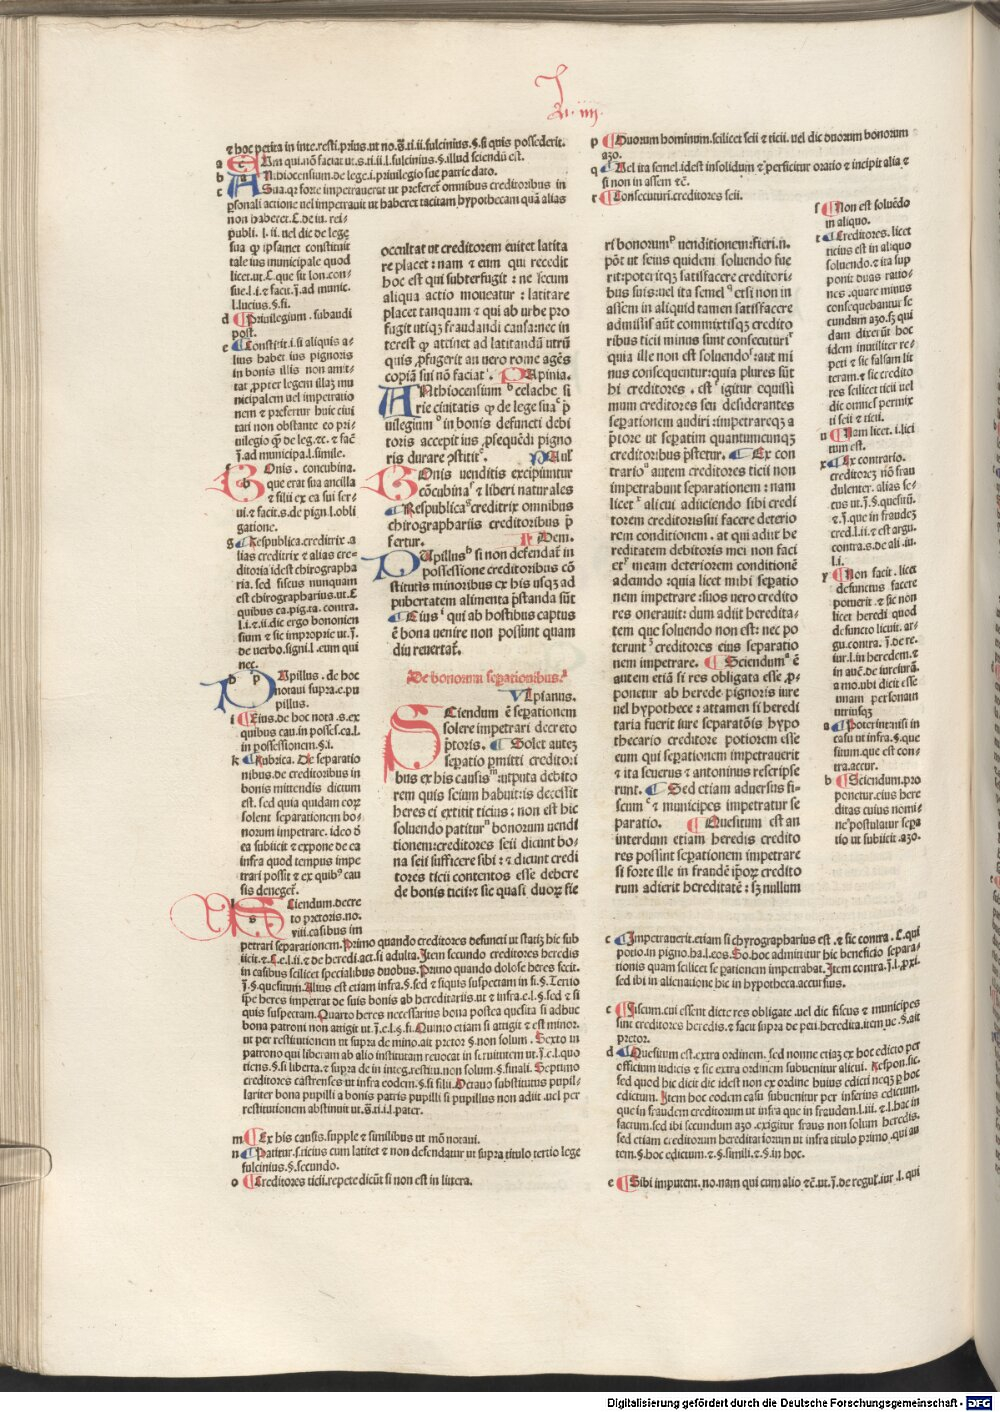 Ti. iiij.
⁊ hoc petita in inte.resti.prius.ut no.ff.ti.ii.fulcinius.§.si quis possederit.
a Am qui.nō faciat ut.s.ti.ii.l.fulcinius.§.illud sciendū est.
b Nthiocensium.de lege.i.priuilegio sue patrie dato.
c Sua.qr forte impetrauerat ut preferret̄ omnibus creditoribus in
personali actione uel impetrauit ut haberet tacitam hypothecam quā alias
non haberet.C.de iu. rei-
publi. l. ii. uel dic de lege
sua ꝙ ipsamet constituit
tale ius municipale quod
licet.ut.C.que sit lon.con-
sue.l.i.⁊ facit.j̄.ad munic.
l.lucius.§.fi.
d Priuilegium . subaudi
post.
e Constitit.i.si aliquis a-
lius habet ius pignoris
in bonis illis non amit-
tat ,ppter legem illaꝫ mu
nicipalem uel impetratio
nem ⁊ prefertur huic ciui
tati non obstante eo pri-
uilegio ꝙ̄ de leg.⁊c. ⁊ fac̄
j̄.ad municipa.l.simile.
f Onis . concubina.
que erat sua ancilla
⁊ filii ex ea sui ser-
ui.⁊ facit.s.de pign.l.obli
gatione.
g Respublica.creditrix .a
lias creditrix ⁊ alias cre-
ditoria idest chirographa
ria. sed fiscus nunquam
est chirographarius.ut.C
quibus ca.pig.ta. contra.
l.i.⁊.ii.dic ergo bononien
sium ⁊ sic improprie ut.j̄.
de uerbo.signi.l .eum qui
nec.
h Vpillus . de hoc
notaui supra.e.pu
pillus.
i Eius.de hoc nota .s.ex
quibus cau.in possef.ca.l.
in possessionem.§.i.
k Rubrica. De separatio
nibus.de creditoribus in
bonis mittendis dictum
est. sed quia quidam eoꝝ
solent separationem bo-
norum impetrare. ideo ō
ea subiicit ⁊ expone de ea
infra quod tempus impe
trari possit ⁊ ex quibꝰ cau
sis denegef.
l Ciendum.decre
to pretoris.no.
viii.casibus im
petrari separationem.Primo quando creditores defuncti ut statiꝫ hic sub
iicit.⁊.C.e.l.ii.⁊ de heredi.act.si adulta.Item secundo creditores heredis
in casibus scilicet specialibus duobus.Primo quando dolose heres fecit.
j̄.§.quesitum.Alius est etiam infra.§.sed ⁊ siquis suspectam in fi.§.Tertio
ip̄e heres impetrat de suis bonis ab hereditariis.ut ⁊ infra.e.l.§.sed ⁊ si
quis suspectam.Quarto heres necessarius bona postea quesita si adhuc
bona patroni non attigit ut.j̄.e.l.§.fi.Quinto etiam si attigit ⁊ est minor.
ut per restitutionem ut supra de mino.ait pretor §.non solum . Sexto in
patrono qui liberam ab alio institutam reuocat in seruitutem ut.j̄.e.l.quo
tiens.§.si liberta.⁊ supra de in integ.restitu.non solum.§.finali. Septimo
creditores castrenses ut infra eodem.§.si filii.Octauo substitutus pupil-
lariter bona pupilli a bonis patris pupilli si pupillus non adiit .uel per
restitutionem abstinuit ut.ff.ti.i.l.pater.
m Ex his causis.supple ⁊ similibus ut mō notaui.
n Patitur.s.ticius cum latitet ⁊ non defendatur ut supra titulo tertio lege
fulcinius.§.secundo.
o Creditores ticii.repete dicūt si non est in littera.
occultat ut creditorem euitet latita
re placet : nam ⁊ eum qui recedit
hoc est qui subterfugit : ne secum
aliqua actio moueatur : latitare
placet tanquam ⁊ qui ab urbe pro
fugit utiqꝫ fraudandi causa:nec in
terest ꝙ attinet ad latitandū utrū
quis ,pfugerit an uero rome agēs
copiā sui nō faciat . Papinia.
Nthiocensium celache si
rie ciuitatis ꝙ de lege sua p̄
uilegium in bonis defuncti debi
toris accepit ius ,psequēdi pigno
ris durare ,pstitit . Paul
Onis uenditis excipiūntur
cōcubina ⁊ liberi naturales
Respublica creditrix omnibus
chirographariis creditoribus p̄
fertur. Idem.
Vpillus si non defendat̄ in
possessione creditoribus cō
stitutis minoribus ex his usqꝫ ad
pubertatem alimenta p̄standa sūt
Eius qui ab hostibus captus
ē bona uenire non possunt quam
diu reuertat̄.
De bonorum sepationibus.
Vlpianus.
Ciendum ē sepationem
solere impetrari decreto
p̄toris. Solet auteꝫ
sepatio p̄mitti creditori
bus ex his causis :utputa debito
rem quis seium habuit:is decessit
heres ei extitit ticius : non est hic
soluendo patitur bonorum uendi
tionem:creditores seii dicunt bo-
na seii sufficere sibi : ⁊ dicunt credi
tores ticii contentos esse debere
de bonis ticii:⁊ sic quasi duoꝝ fie
ri bonorum uenditionem:fieri.n.
pōt ut seius quidem soluendo fue
rit:poteritqꝫ satisfacere creditori-
bus suis:uel ita semel etsi non in
assem in aliquid tamen satisfacere
admissis aūt commixtisqꝫ credito
ribus ticii minus sunt consecuturi
quia ille non est soluendo :aut mi
nus consequentur:quia plures sūt
hi creditores . est igitur equissi
mum creditores seu desiderantes
separationem audiri :impetrareqꝫ a
p̄tore ut sepatim quantumcunqꝫ
creditoribus p̄stetur. Ex con
trario autem creditores ticii non
impetrabunt separationem : nam
licet alicui adiiciendo sibi credi
torem creditorissui facere deterio
rem conditionem . at qui adiit he
reditatem debitoris mei non faci
et meam deteriorem conditionē
adeundo :quia licet mihi sepatio
nem impetrare :suos uero credito
res onerauit: dum adiit heredita-
tem que soluendo non est: nec po
terunt creditores eius separatio
nem impetrare. Sciendum ē
autem etiā si res obligata esse ,p-
ponetur ab herede pignoris iure
uel hypothece : attamen si heredi
taria fuerit iure separatōis hypo
thecario creditore potiorem esse
eum qui sepationem impetrauerit
⁊ ita seuerus ⁊ antoninus rescripse
runt. Sed etiam aduersus fi-
scum ⁊ municipes impetratur se
paratio. Quesitum est an
interdum etiam heredis credito
res possint sepationem impetrare
si forte ille in fraudē ip̄oꝝ credito
rum adierit hereditatē : sꝫ nullum
p Duorum hominum.scilicet seii ⁊ ticii. uel dic duorum bonorum
azo.
q Vel ita semel.idest insolidum ⁊ perficitur oratio ⁊ incipit alia ⁊
si non in assem ⁊c̄.
r Consecuturi.creditores seii.
s Non est soluēdo
in aliquo.
t Creditores. licet
ticius est in aliquo
soluendo.⁊ ita sup
ponit duas ratio-
nes :quare minus
consequebantur se
cundum azo.sꝫ qui
dam dixerūt hoc
idem inutiliter re-
peti ⁊ sic falsam lit
teram.⁊ sic credito
res scilicet ticii uel
dic omnes permix
ti seii ⁊ ticii.
u Nam licet. i.lici
tum est.
x Ex contrario.
creditoreꝫ nō frau
dulenter. alias se-
cus ut.j̄.§.quesitū.
⁊.j̄.que in fraudeꝫ
cred.l.ii.⁊ est argu.
contra.s.de ali .iu.
l.i.
y Non facit . licet
defunctus facere
potuerit .⁊ sic non
licet heredi quod
defuncto licuit. ar-
gu.contra. j̄.de re.
iur.l.in heredem.⁊
in autē.de iureiurā.
a mo.ubi dicit esse
unam personam
utriusqꝫ
a Poterint.nisi in
casu ut infra.§.que
situm.que est con-
tra.accur.
b Sciendum.pro
ponetur.eius here
ditas cuius nomi-
ne postulatur sepa
tio ut subiicit .azo.
c Impetrauerit.etiam si chyrographarius est .⁊ sic contra . C.qui
potio.in pigno.ha.l.eos.So.hoc admittitur hic beneficio separa-
tionis quam scilicet sepationem impetrabat.Item contra.j̄.l.pxi.
sed ibi in alienatione hic in hypotheca.accursius.
c Fiscum.cui essent dicte res obligate .uel dic fiscus ⁊ municipes
sint creditores heredis.⁊ facit supra de peti.heredita.item ue.§.ait
pretor.
d Quesitum est.extra ordinem. sed nonne etiaꝫ ex hoc edicto per
officium iudicis ⁊ sic extra ordinem subuenitur alicui. Respon.sic.
sed quod hic dicit dic idest non ex ordine huius edicti neqꝫ p hoc
edictum. Item hoc eodem casu subuenitur per inferius edictum.
que in fraudem creditorum ut infra que in fraudem.l.iii. ⁊.l.hac in
factum.sed ibi secundum azo .exigitur fraus non solum heredis.
sed etiam creditorum hereditariorum ut infra titulo primo .qui au
tem.§.hoc edictum.⁊.§.simili.⁊.§.in hoc.
e Sibi imputent. no.nam qui cum alio ⁊c̄.ut.j̄.de regul.iur .l. qui
Digitalisierung gefördert durch die Deutsche Forschungsgemeinschaft - DFG